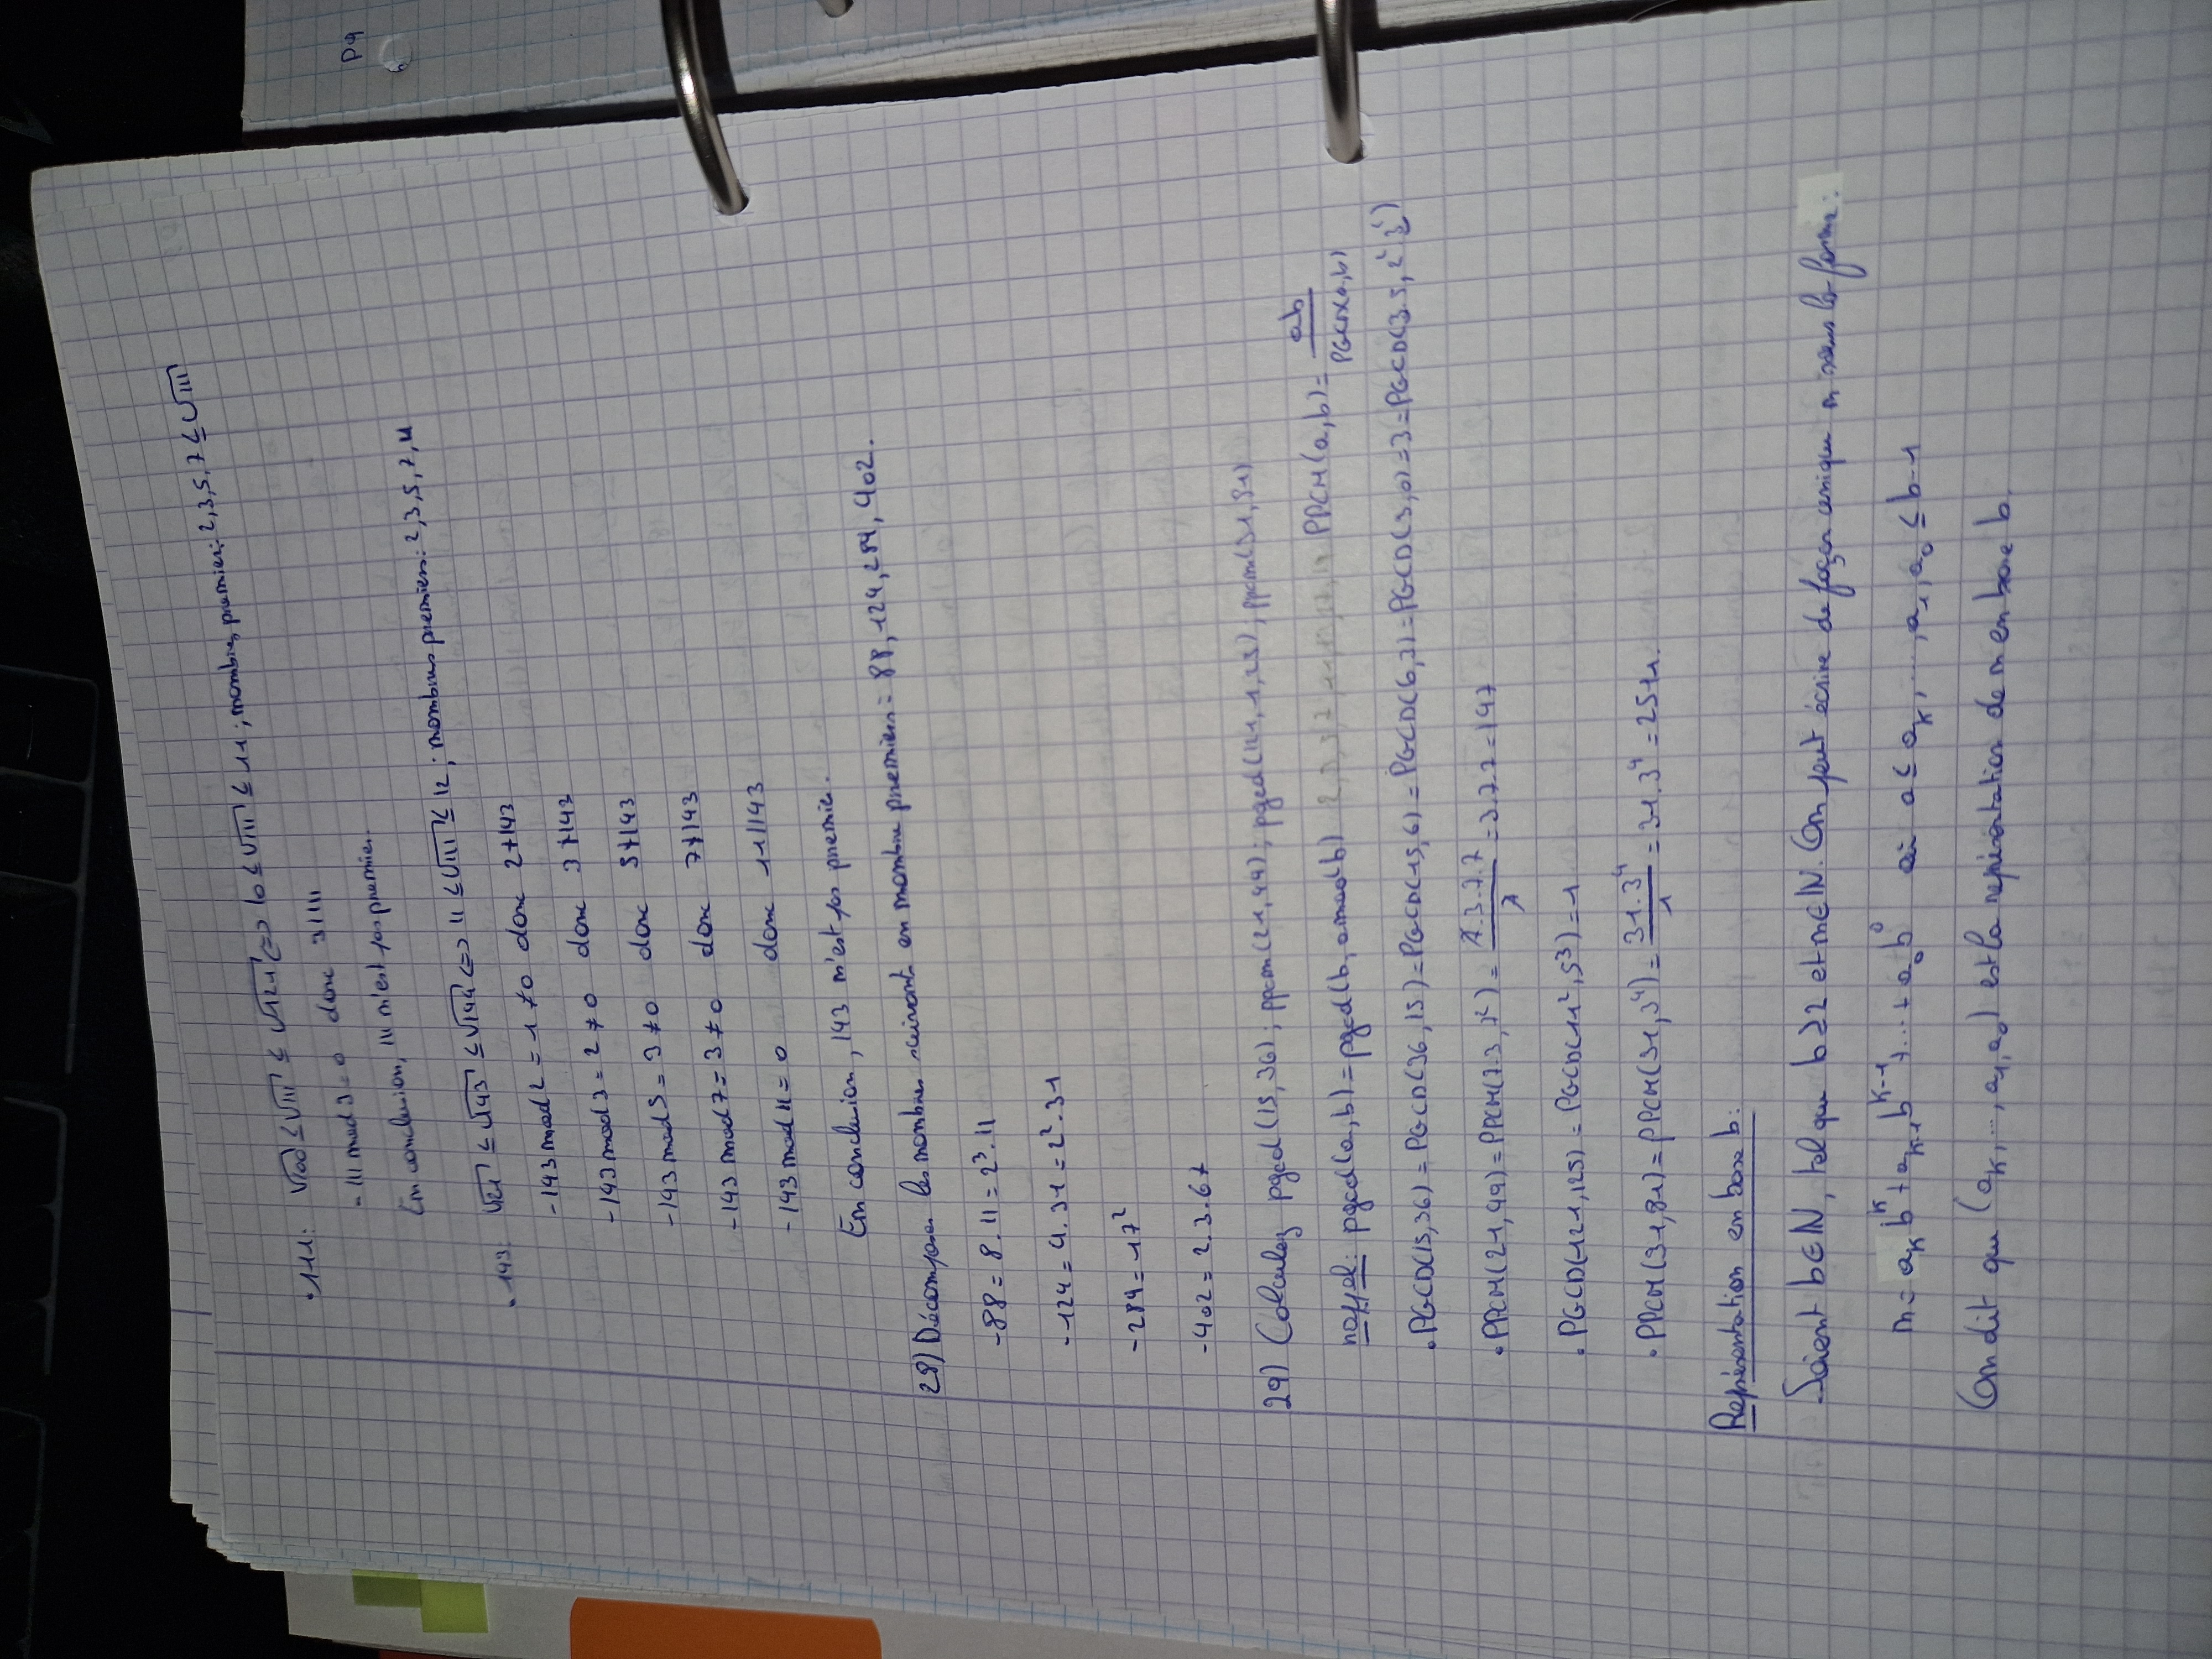 •111: √100 ≤ √111 ≤ √121 <=> 10 ≤ √111 ≤ 11 ; nombres premiers: 2,3,5,7 ≤ √111
- 111 mod 3 = 0 donc 3|111
En conclusion, 111 n'est pas premier.
•143: √121 ≤ √143 ≤ √144 <=> 11 ≤ √111 ≤ 12 ; nombres premiers: 2,3,5,7,11
- 143 mod 2 = 1 ≠ 0 donc 2∤143
- 143 mod 3 = 2 ≠ 0 donc 3∤143
- 143 mod 5 = 3 ≠ 0 donc 5∤143
- 143 mod 7 = 3 ≠ 0 donc 7∤143
- 143 mod 11 = 0 donc 11|143
En conclusion, 143 n'est pas premier.
28) Décomposer les nombres suivant en nombre premiers: 88, 124, 289, 402.
- 88 = 8.11 = 2³.11
- 124 = 4.31 = 2².31
- 289 = 17²
- 402 = 2.3.67
29) Calculez pgcd(15,36); ppcm(21,49); pgcd(121,125); ppcm(31,81)
rappel: pgcd(a,b) = pgcd(b, a mod b) PPCM(a,b) = ab / PGCD(a,b)
•PGCD(15,36) = PGCD(36,15) = PGCD(15,6) = PGCD(6,3) = PGCD(3,0) = 3 = PGCD(3.5, 2².3²)
•PPCM(21,49) = PPCM(7.3, 7²) = 7.3.7.7 / 7 = 3.7.7 = 147
•PGCD(121,125) = PGCD(11², 5³) = 1
•PPCM(31,81) = PPCM(31,3⁴) = 31.3⁴ / 1 = 31.3⁴ = 2511.
Représentation en base b:
Soient b∈ℕ, tel que b ≥ 2 et n∈ℕ. On peut écrire de façon unique n sous la forme:
n = aₖ bᵏ + aₖ₋₁ bᵏ⁻¹ + ... + a₀ b⁰ où 0 ≤ aₖ, ..., a₁, a₀ ≤ b-1
On dit que (aₖ, ..., a₁, a₀) est la représentation de n en base b.